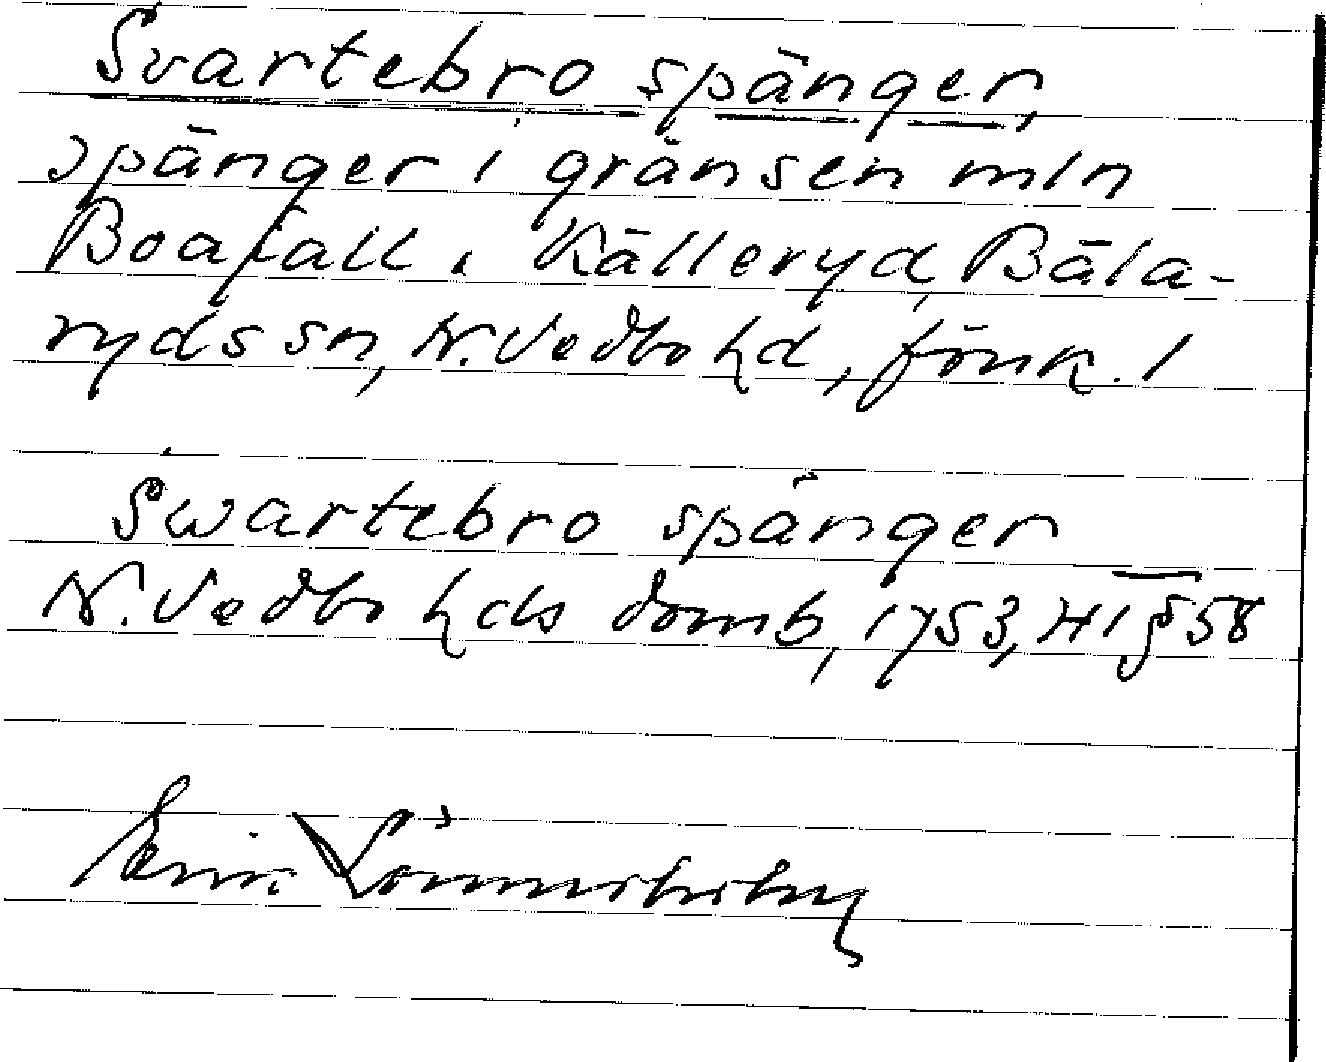 Svartebro spänger,
spänger i gränsen mln
Boafall i Källeryd, Bäla-
ryds sn, N. Vedbo hd, Jönk. l

Swartebro spänger
N. Vedbo hds domb, 1753, HT § 58

Erik